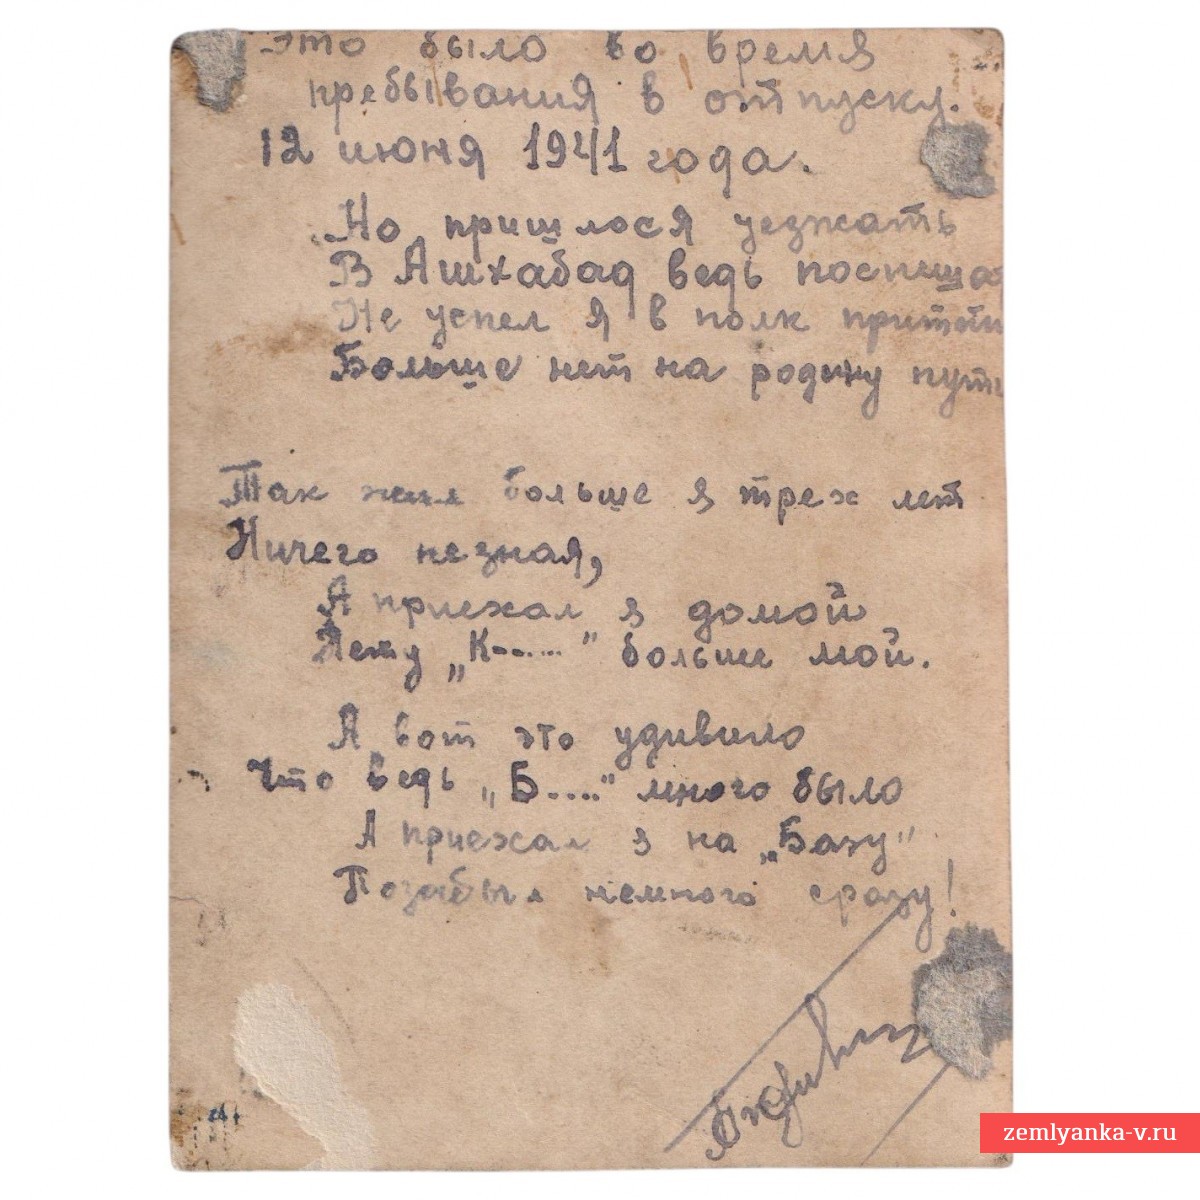 Это было во время
пребывания в отпуску.
12 июня 1941 года.
Но пришлося уезжать
В Ашхабад ведь поспеша
Не успел я в полк притти
Больше нет на родину пути
Так жил больше я трех лет
Ничего незная,
А приехал я домой
Нету „К-......" больше мой.
А вот это удивило
Что ведь „Б....." много было
А приехал я на „Базу"
Позабыл немного сразу!
zemlyanka-v.ru